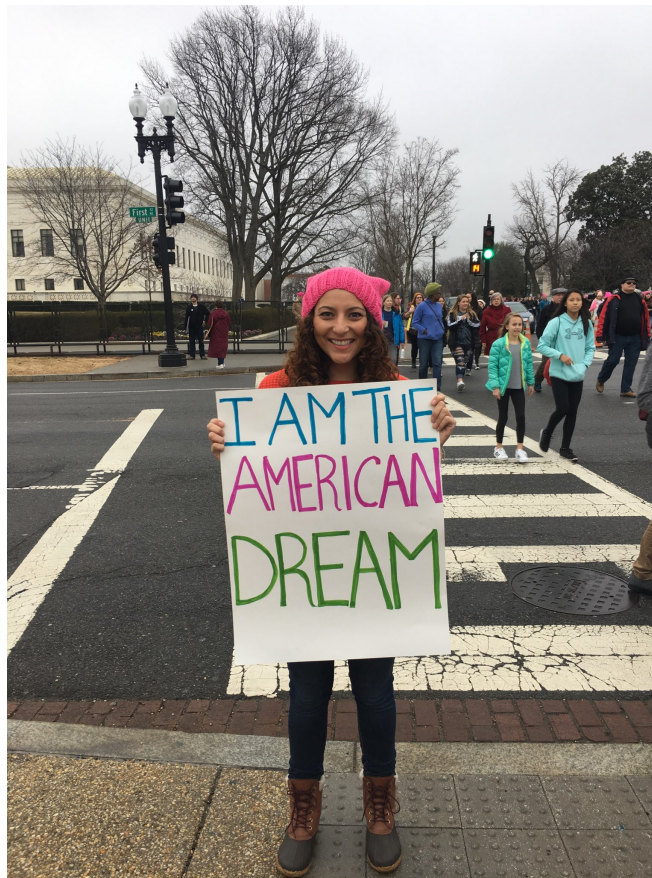 First St
I AM THE
AMERICAN
DREAM